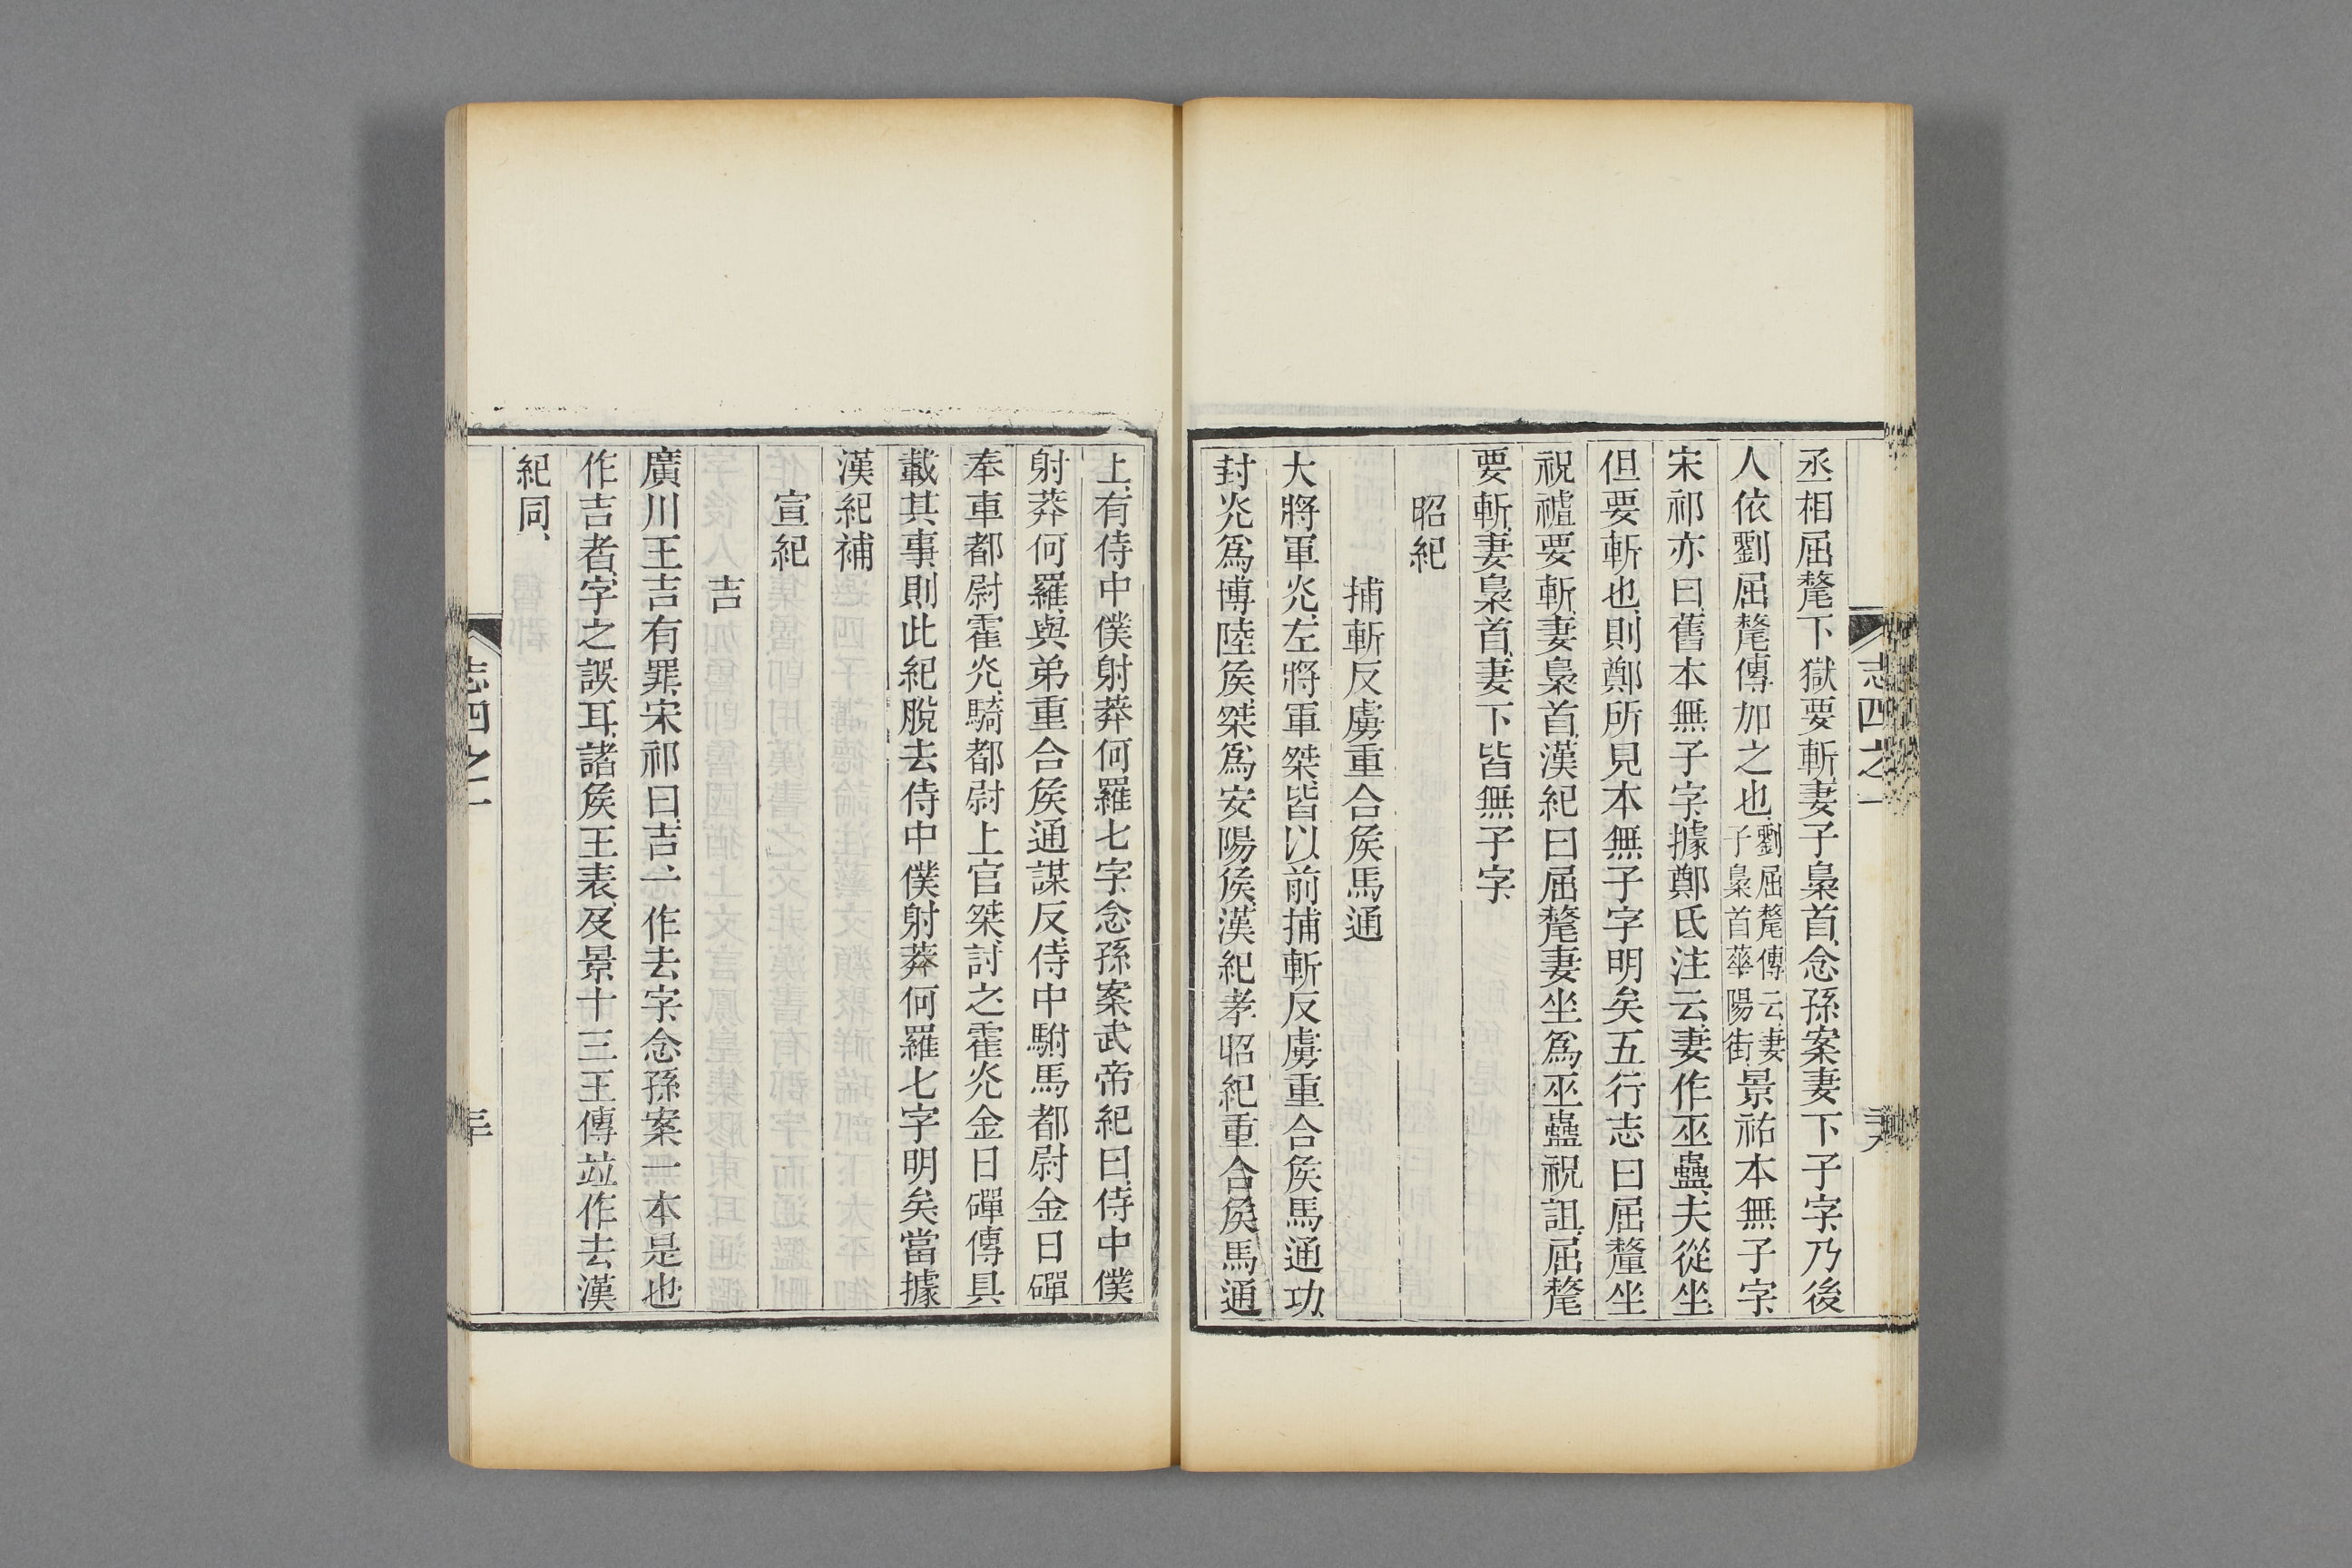 志四之一
丞相屈氂下獄要斬妻子梟首念孫案妻下子字乃後
人依劉屈氂傳加之也劉屈氂傳云妻子梟首華陽街景祐本無子字
宋祁亦曰舊本無子字據鄭氏注云妻作巫蠱夫從坐
但要斬也則鄭所見本無子字明矣五行志曰屈釐坐
祝禠要斬妻梟首漢紀曰屈氂妻坐爲巫蠱祝詛屈氂
要斬妻梟首妻下皆無子字
昭紀
捕斬反虜重合矦馬通
大將軍光左將軍桀皆以前捕斬反虜重合矦馬通功
封光爲博陸矦桀爲安陽矦漢紀孝昭紀重合矦馬通
上有侍中僕射莽何羅七字念孫案武帝紀曰侍中僕
射莽何羅與弟重合矦通謀反侍中駙馬都尉金日磾
奉車都尉霍光騎都尉上官桀討之霍光金日磾傳具
載其事則此紀脫去侍中僕射莽何羅七字明矣當據
漢紀補
宣紀
吉
廣川王吉有罪宋祁曰吉一作去字念孫案一本是也
作吉者字之誤耳諸矦王表及景十三王傳竝作去漢
紀同
志四之一
三十